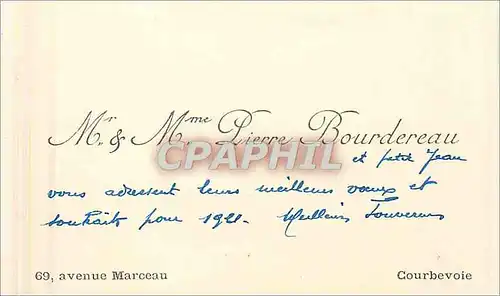 Mr. & Mme. Pierre Bourdereau
CPAPHIL
et petit Jean
vous adressent leurs meilleurs vœux et
souhaits pour 1921. Meilleurs Souvenirs
69, avenue Marceau
Courbevoie